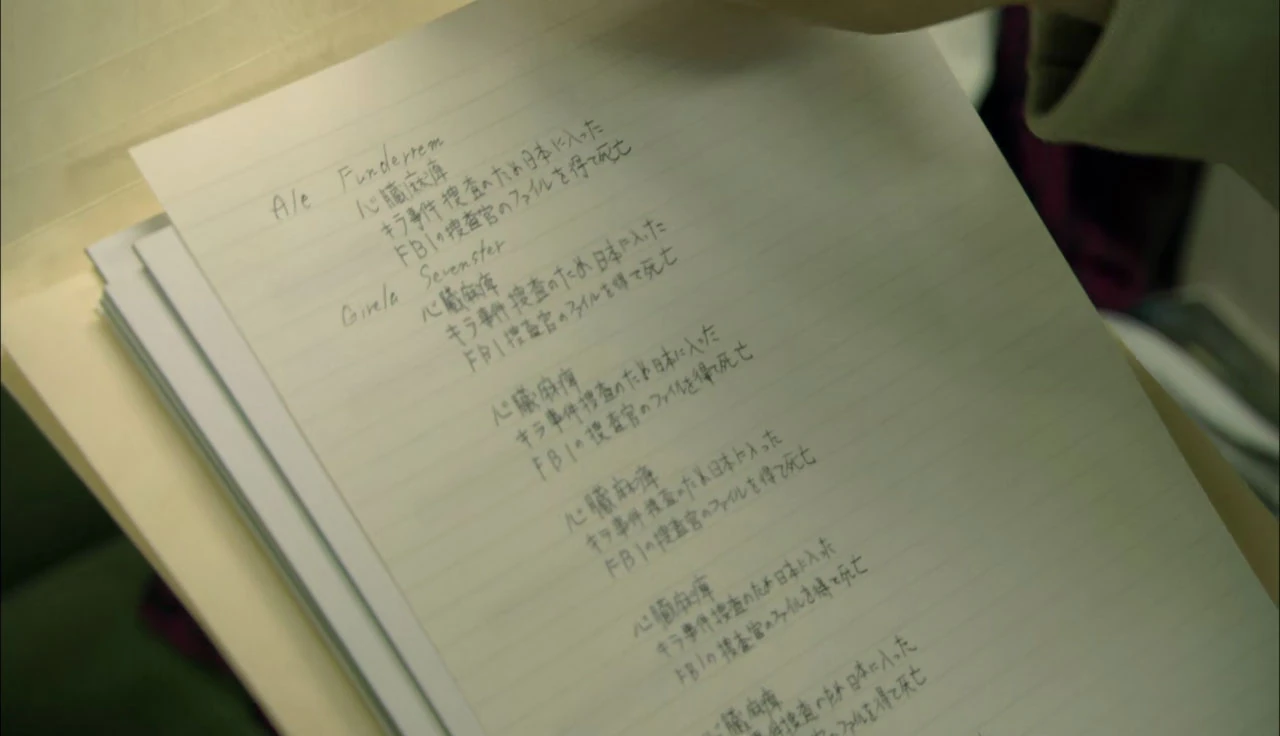 Ale Funderrem
心臓麻痺
キラ事件捜査のため日本に入った
FBIの捜査官のファイルを得て死亡
Girela Sevenster
心臓麻痺
キラ事件捜査のため日本に入った
FBI捜査官のファイルを得て死亡
心臓麻痺
キラ事件捜査のため日本に入った
FBIの捜査官のファイルを得て死亡
心臓麻痺
キラ事件捜査のため日本に入った
FBIの捜査官のファイルを得て死亡
心臓麻痺
キラ事件捜査のため日本に入った
FBIの捜査官のファイルを得て死亡
心臓麻痺
事件捜査のため日本に入った
捜査官のファイルを得て死亡